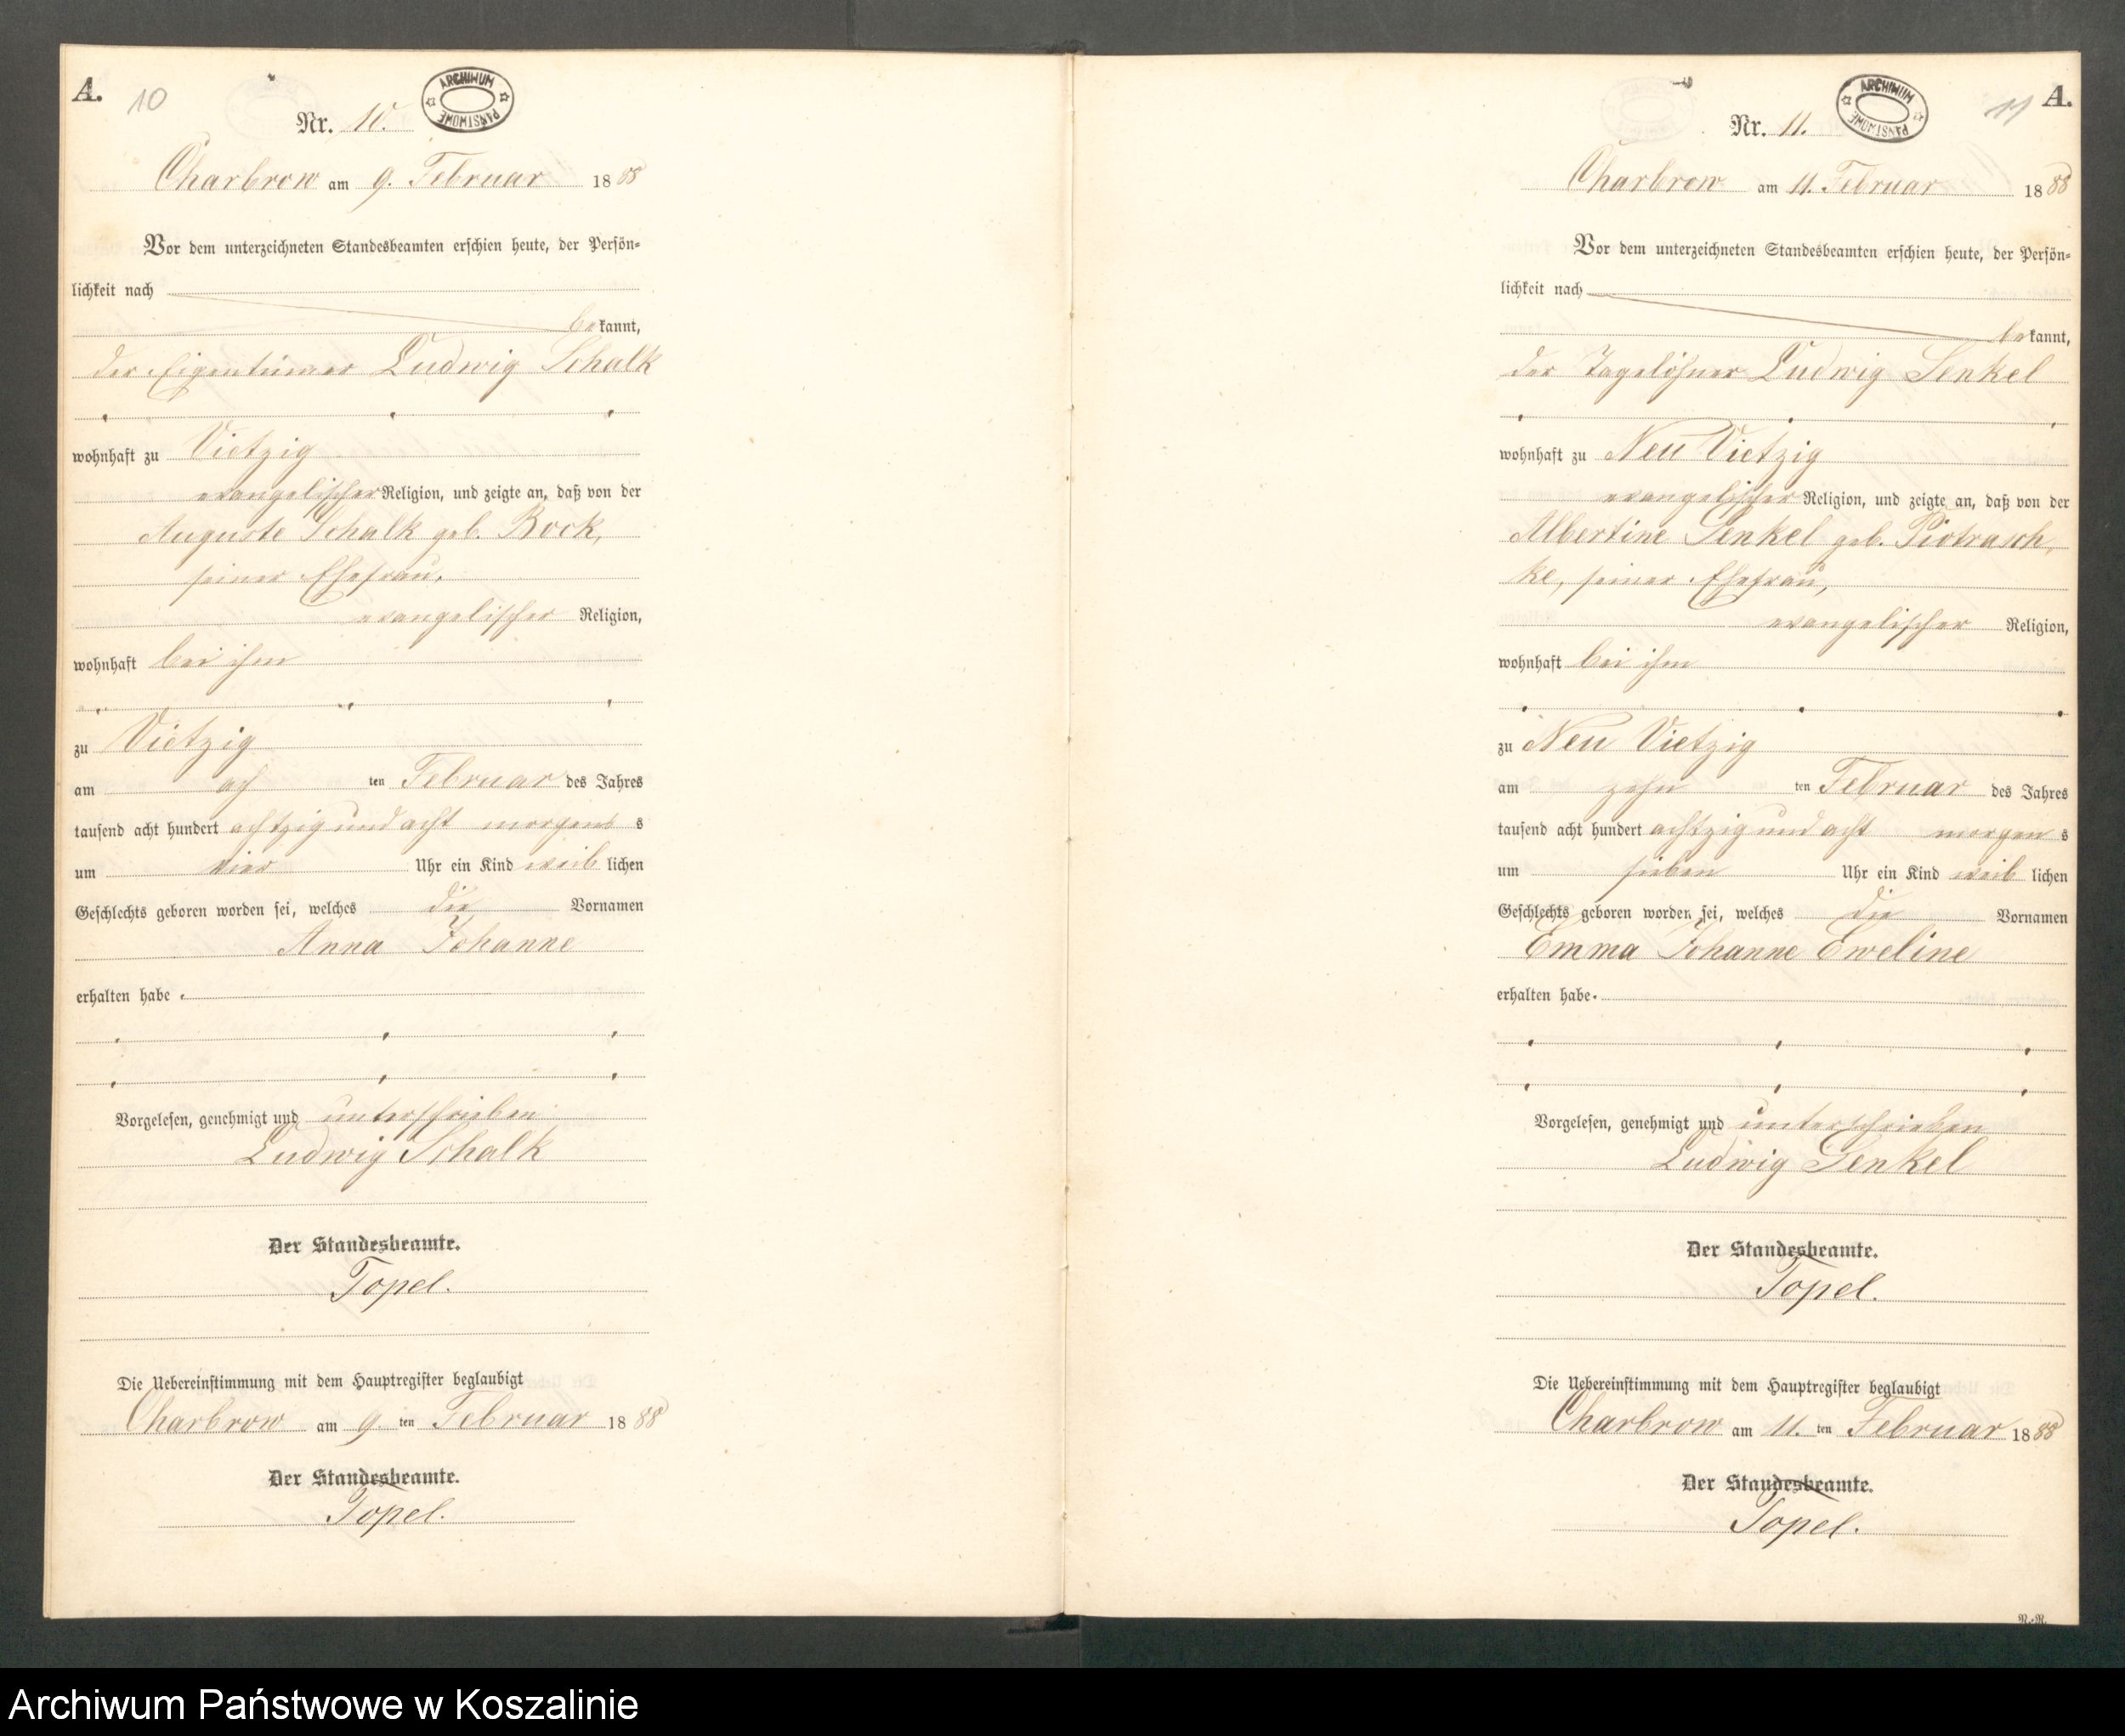 A.
10
ARCHIWUM PAŃSTWOWE
Nr. 10.
Charbrow am 9. Februar 1888
Vor dem unterzeichneten Standesbeamten erschien heute, der Persön=
lichkeit nach
bekannt,
der Eigentümer Ludwig Schalk
wohnhaft zu Vietzig
evangelischer Religion, und zeigte an, daß von der
Auguste Schalk geb. Bock,
seiner Ehefrau,
evangelischer Religion,
wohnhaft bei ihm
zu Vietzig
am ach ten Februar des Jahres
tausend acht hundert achtzig und acht morgens s
um vier Uhr ein Kind weib lichen
Geschlechts geboren worden sei, welches die Vornamen
Anna Johanne
erhalten habe.
Vorgelesen, genehmigt und unterschrieben
Ludwig Schalk
Der Standesbeamte.
Topel.
Die Uebereinstimmung mit dem Hauptregister beglaubigt
Charbrow am 9. ten Februar 1888
Der Standesbeamte.
Topel.
A.
11
ARCHIWUM PAŃSTWOWE
Nr. 11.
Charbrow am 11. Februar 1888
Vor dem unterzeichneten Standesbeamten erschien heute, der Persön=
lichkeit nach
bekannt,
der Tagelöhner Ludwig Senkel
wohnhaft zu Neu Vietzig
evangelischer Religion, und zeigte an, daß von der
Albertine Senkel geb. Piotrasch,
ke, seiner Ehefrau,
evangelischer Religion,
wohnhaft bei ihm
zu Neu Vietzig
am zehn ten Februar des Jahres
tausend acht hundert achtzig und acht morgen s
um sieben Uhr ein Kind weib lichen
Geschlechts geboren worden sei, welches die Vornamen
Emma Johanne Eweline
erhalten habe.
Vorgelesen, genehmigt und unterschrieben
Ludwig Senkel
Der Standesbeamte.
Topel.
Die Uebereinstimmung mit dem Hauptregister beglaubigt
Charbrow am 11. ten Februar 1888
Der Standesbeamte.
Topel.
R.-R.
Archiwum Państwowe w Koszalinie